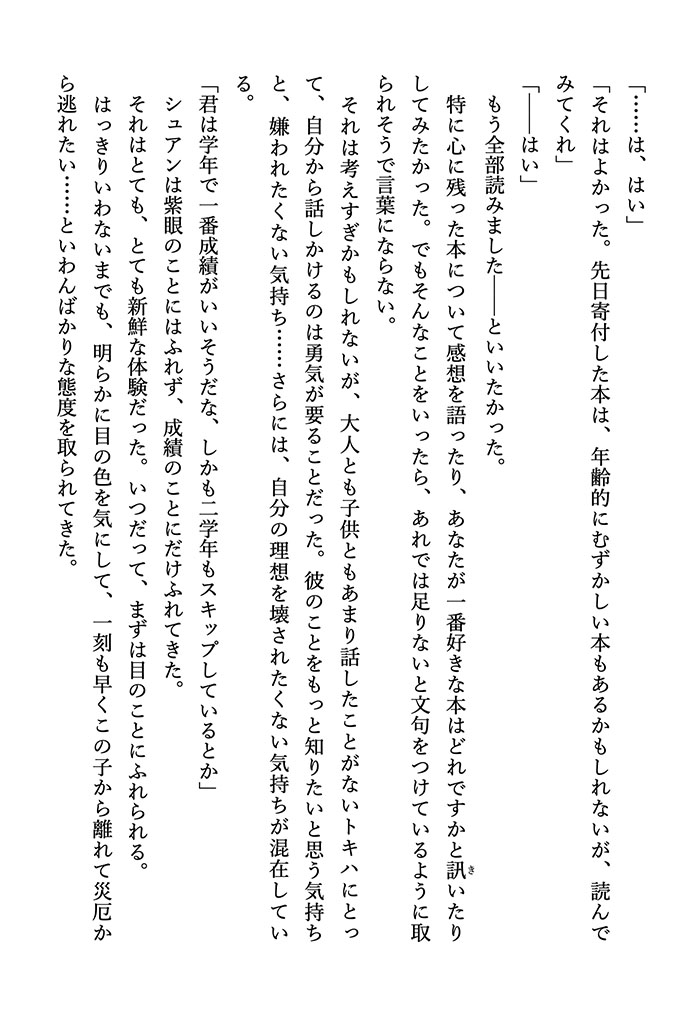 「……は、はい」
「それはよかった。先日寄付した本は、年齢的にむずかしい本もあるかもしれないが、読んで
みてくれ」
「――はい」
もう全部読みました――といいたかった。
特に心に残った本について感想を語ったり、あなたが一番好きな本はどれですかと訊いたり
してみたかった。でもそんなことをいったら、あれでは足りないと文句をつけているように取
られそうで言葉にならない。
それは考えすぎかもしれないが、大人とも子供ともあまり話したことがないトキハにとっ
て、自分から話しかけるのは勇気が要ることだった。彼のことをもっと知りたいと思う気持ち
と、嫌われたくない気持ち……さらには、自分の理想を壊されたくない気持ちが混在してい
る。
「君は学年で一番成績がいいそうだな、しかも二学年もスキップしているとか」
シュアンは紫眼のことにはふれず、成績のことにだけふれてきた。
それはとても、とても新鮮な体験だった。いつだって、まずは目のことにふれられる。
はっきりいわないまでも、明らかに目の色を気にして、一刻も早くこの子から離れて災厄か
ら逃れたい……といわんばかりな態度を取られてきた。